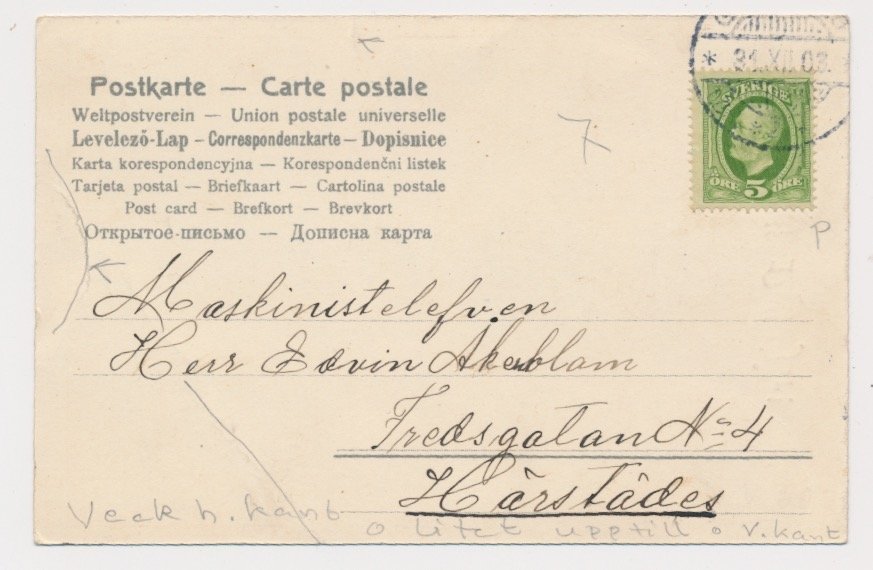 Postkarte — Carte postale
Weltpostverein — Union postale universelle
Levelező-Lap – Correspondenzkarte – Dopisnice
Karta korespondencyjna — Korespondenčni listek
Tarjeta postal — Briefkaart — Cartolina postale
Post card — Brefkort — Brevkort
Открытое-письмо — Дописна карта
* 31.XII.03
SVERIGE
ÖRE 5 ÖRE
7
P
Maskinistelefven
Herr Edvin Akerblom
Fredsgatan No 4
Härstädes
Veck h. kant
o litet upptill o v. kant